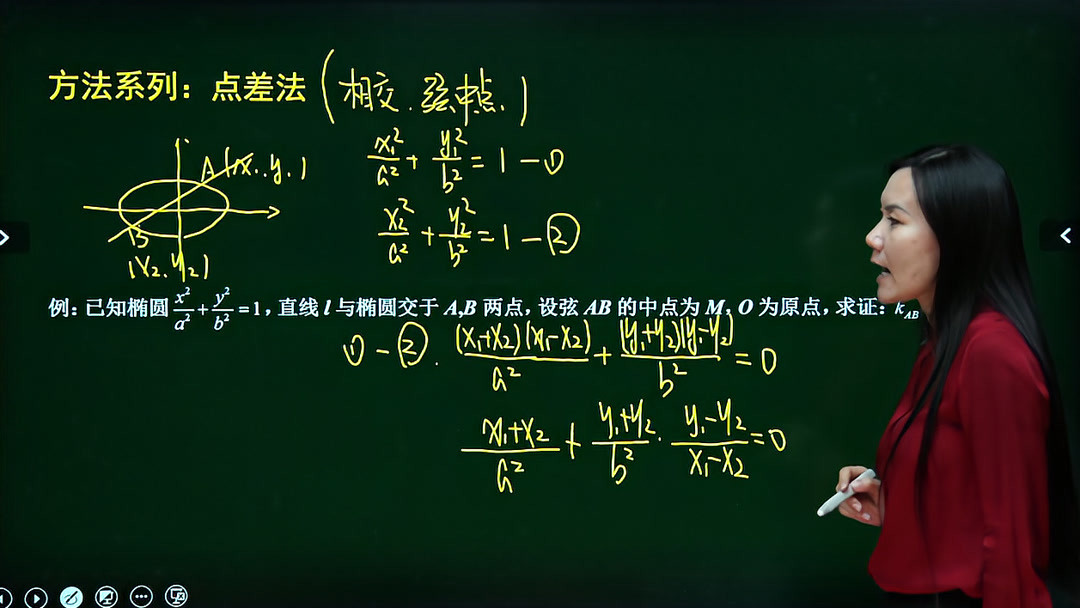 方法系列：点差法（相交．弦中点．）
A(x₁.y₁)
B
(x₂.y₂)
x₁²/a² + y₁²/b² = 1 － ①
x₂²/a² + y₂²/b² = 1 － ②
例：已知椭圆 x²/a² + y²/b² = 1，直线 l 与椭圆交于 A,B 两点，设弦 AB 的中点为 M，O 为原点，求证：k_AB
① － ②． (x₁+x₂)(x₁-x₂)/a² + (y₁+y₂)(y₁-y₂)/b² = 0
x₁+x₂/a² + y₁+y₂/b² · y₁-y₂/x₁-x₂ = 0